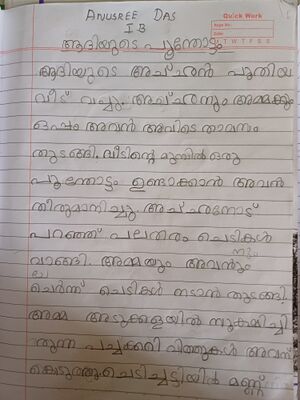 Quick Work
ANUSREE DAS
I B
M T W T F S S
ആദിയുടെ പൂന്തോട്ടം
ആദിയുടെ അച്ഛൻ പുതിയ
വീട് വച്ചു. അച്ഛനും അമ്മക്കും
ഒപ്പം അവൻ അവിടെ താമസം
തുടങ്ങി. വീടിന്റെ മുന്നിൽ ഒരു
പൂന്തോട്ടം ഉണ്ടാക്കാൻ അവൻ
തീരുമാനിച്ചു. അച്ഛനോട്
പറഞ്ഞ് പലതരം ചെടികൾ
വാങ്ങി. അമ്മയും അവനും
ചേർന്ന് ചെടികൾ നടാൻ തുടങ്ങി.
അമ്മ അടുക്കളയിൽ സൂക്ഷിച്ചി
രുന്ന പച്ചക്കറി വിത്തുകൾ അവന്
കൊടുത്തു. ചെടിച്ചട്ടിയിൽ മണ്ണ്